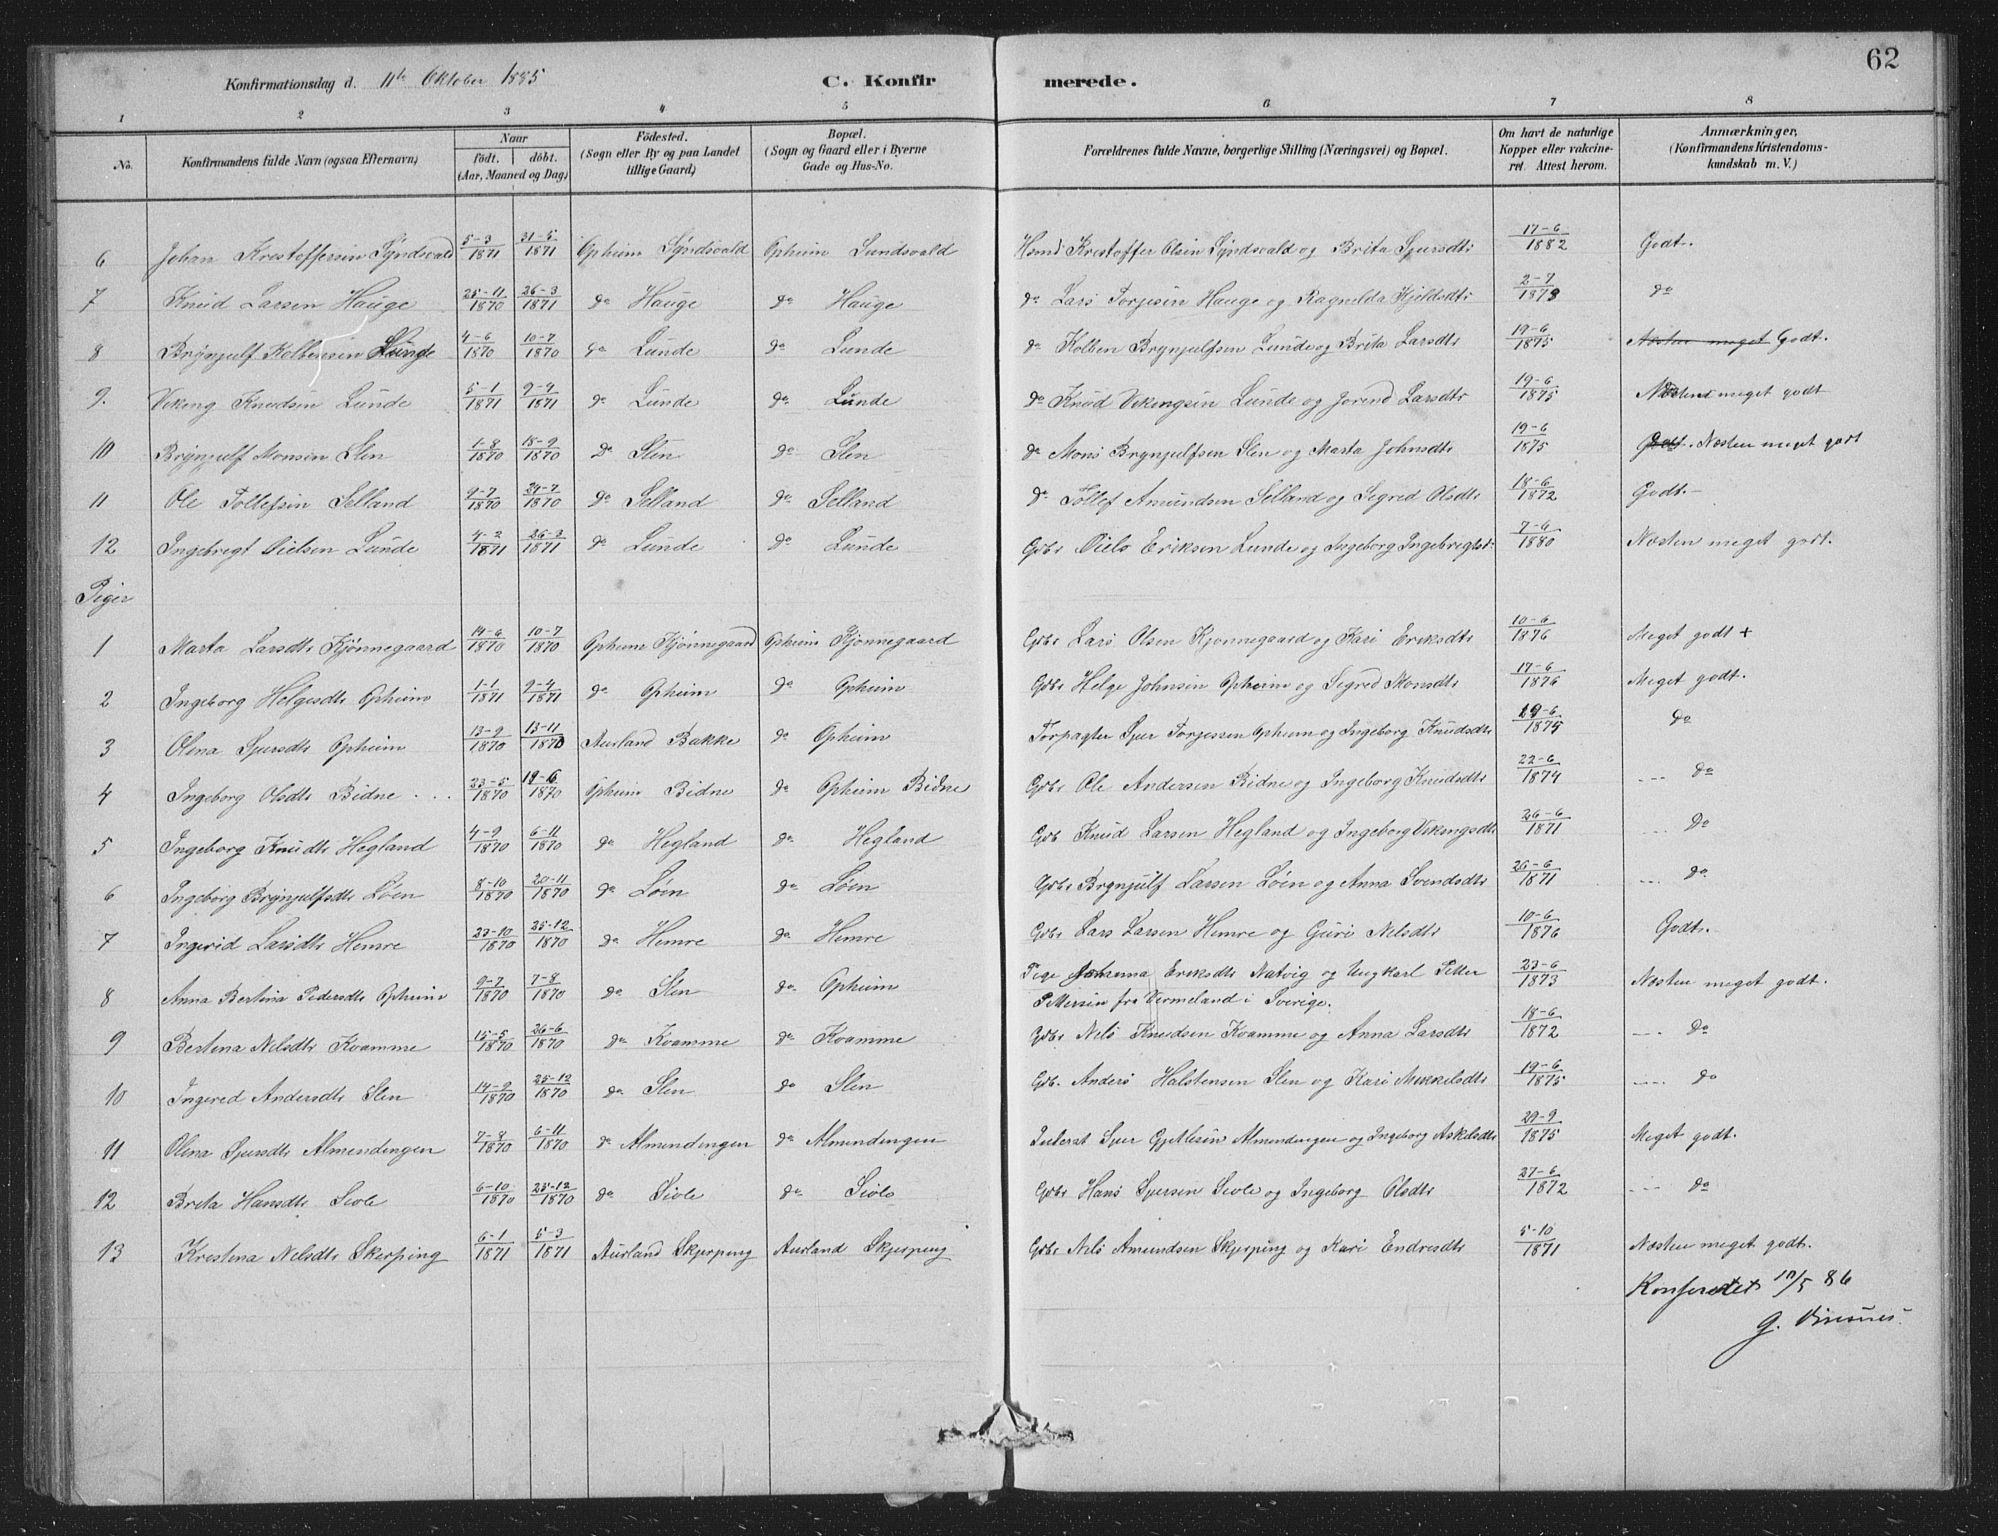 62
Konfirmationsdag d. 11te Oktober 1885 C. Konfirmerede.
1 2 3 4 5 6 7 8
No. Konfirmandens fulde Navn (ogsaa Efternavn) Naar födt. döbt. (Aar, Maaned og Dag) Födested. (Sogn eller By og paa Landet tillige Gaard) Bopæl. (Sogn og Gaard eller i Byerne Gade og Hus-No. Forældrenes fulde Navne, borgerlige Stilling (Næringsvei) og Bopæl. Om havt de naturlige Kopper eller vakcineret. Attest herom. Anmærkninger, (Konfirmandens Kristendomskundskab m. V.)
6 Johan Krestoffersen Syndsvald 5-3 1871 31-5 1871 Opheim Syndsvald Opheim Sundsvald Hsmd Krestoffer Olsen Syndsvald og Brita Sjursdtr 17-6 1882 Godt.
7 Knud Larsen Hauge 25-11 1870 26-3 1871 do Hauge do Hauge do Lars Torjesen Hauge og Ragnilda Kjeldsdtr 2-7 1878 do
8 Brynjulf Kolbensen Lunde 4-6 1870 10-7 1870 do Lunde do Lunde do Kolben Brynjulfsen Lunde og Brita Larsdtr 19-6 1875 Næsten meget Godt.
9. Vikeng Knudsen Lunde 5-1 1871 9-4 1871 do Lunde do Lunde do Knud Vikengsen Lunde og Jorend Larsdtr 19-6 1875 Næsten meget godt
10 Brynjulf Monsen Slen 1-8 1870 18-9 1870 do Slen do Slen do Mons Brynjulfsen Slen og Marta Johnsdtr 19-6 1875 Godt. Næsten meget godt
11 Ole Tollefsen Selland 9-7 1870 24-7 1870 do Selland do Selland do Tollef Amundsen Selland og Segred Olsdtr 18-6 1872 Godt.
12 Ingebregt Oielsen Lunde 4-2 1871 26-3 1871 do Lunde do Lunde Gdbr Oiels Eriksen Lunde og Ingeborg Ingebregtsd 7-6 1880 Næsten meget godt.
Piger
1 Marta Larsdtr Kjönnegaard 14-6 1870 10-7 1870 Opheim Kjönnegaard Opheim Kjönnegaard Gdbr Lars Olsen Kjönnegaard og Kari Eriksdtr 10-6 1876 Meget godt +
2 Ingeborg Helgesdtr Opheim 1-1 1871 9-4 1871 do Opheim do Opheim Gdbr Helge Johnsen Opheim og Segred Monsdtr 17-6 1876 Meget godt.
3 Olena Sjursdtr Opheim 13-9 1870 13-11 1870 Aurland Bakke do Opheim Forpagter Sjur Torjessen Opheim og Ingeborg Knudsdtr 19-6 1875 do
4 Ingeborg Olsdtr Bidne 23-5 1870 19-6 1870 Opheim Bidne do Opheim Bidne Gdbr Ole Andersen Bidne og Ingeborg Knudsdtr 22-6 1874 do
5 Ingeborg Knudtr Hegland 4-9 1870 6-11 1870 do Hegland do Hegland Gdb Knud Larsen Hegland og Ingeborg Vikengsdtr 26-6 1871 do
6 Ingeborg Brynjulfsdtr Löen 8-10 1870 20-11 1870 do Löen do Löen Gdbr Brynjulf Larsen Löen og Anna Svendsdtr 26-6 1871 do
7 Ingerid Larsdtr Hemre 23-10 1870 25-12 1870 do Hemre do Hemre Gdbr Lars Larsen Hemre og Guri Nelsdtr 10-6 1876 Godt.
8 Anna Bertina Pedersdtr Opheim 9-7 1870 7-8 1870 do Slen do Opheim Pige Eriksdtr Natvig og Ungkarl Petter Pettersen fra Vermeland i Sverige. 23-6 1873 Næsten meget godt.
9 Bertena Nilsdtr Kvamme 15-5 1870 26-6 1870 do Kvamme do Kvamme Gdbr Nels Knudsen Kvamme og Anna Larsdtr 18-6 1872 do
10 Ingered Andersdtr Slen 14-9 1870 25-12 1870 do Slen do Slen Gdb. Anders Halstensen Slen og Kari Mikkelsdtr 19-6 1875 do
11 Olena Sjursdtr Almendengen 7-8 1870 6-11 1870 do Almendengen do Almendengen Inderst Sjur Gjettlesen Almendengen og Ingeborg Askelsdtr 29-9 1875 Meget godt.
12 Breta Hansdtr Sivle 6-10 1870 25-12 1870 do Sivle do Sivle Gdbr Hans Sjursen Sivle og Ingeborg Olsdtr 27-6 1872 do
13 Krestena Nelsdtr Skerping 6-1 1871 5-3 1871 Aurland Skjerping Aurland Skjerping Gdbr Nels Amundsen Skjerping og Kari Endresdtr 5-10 1871 Næsten meget godt.
Konfereret /5 86
G.